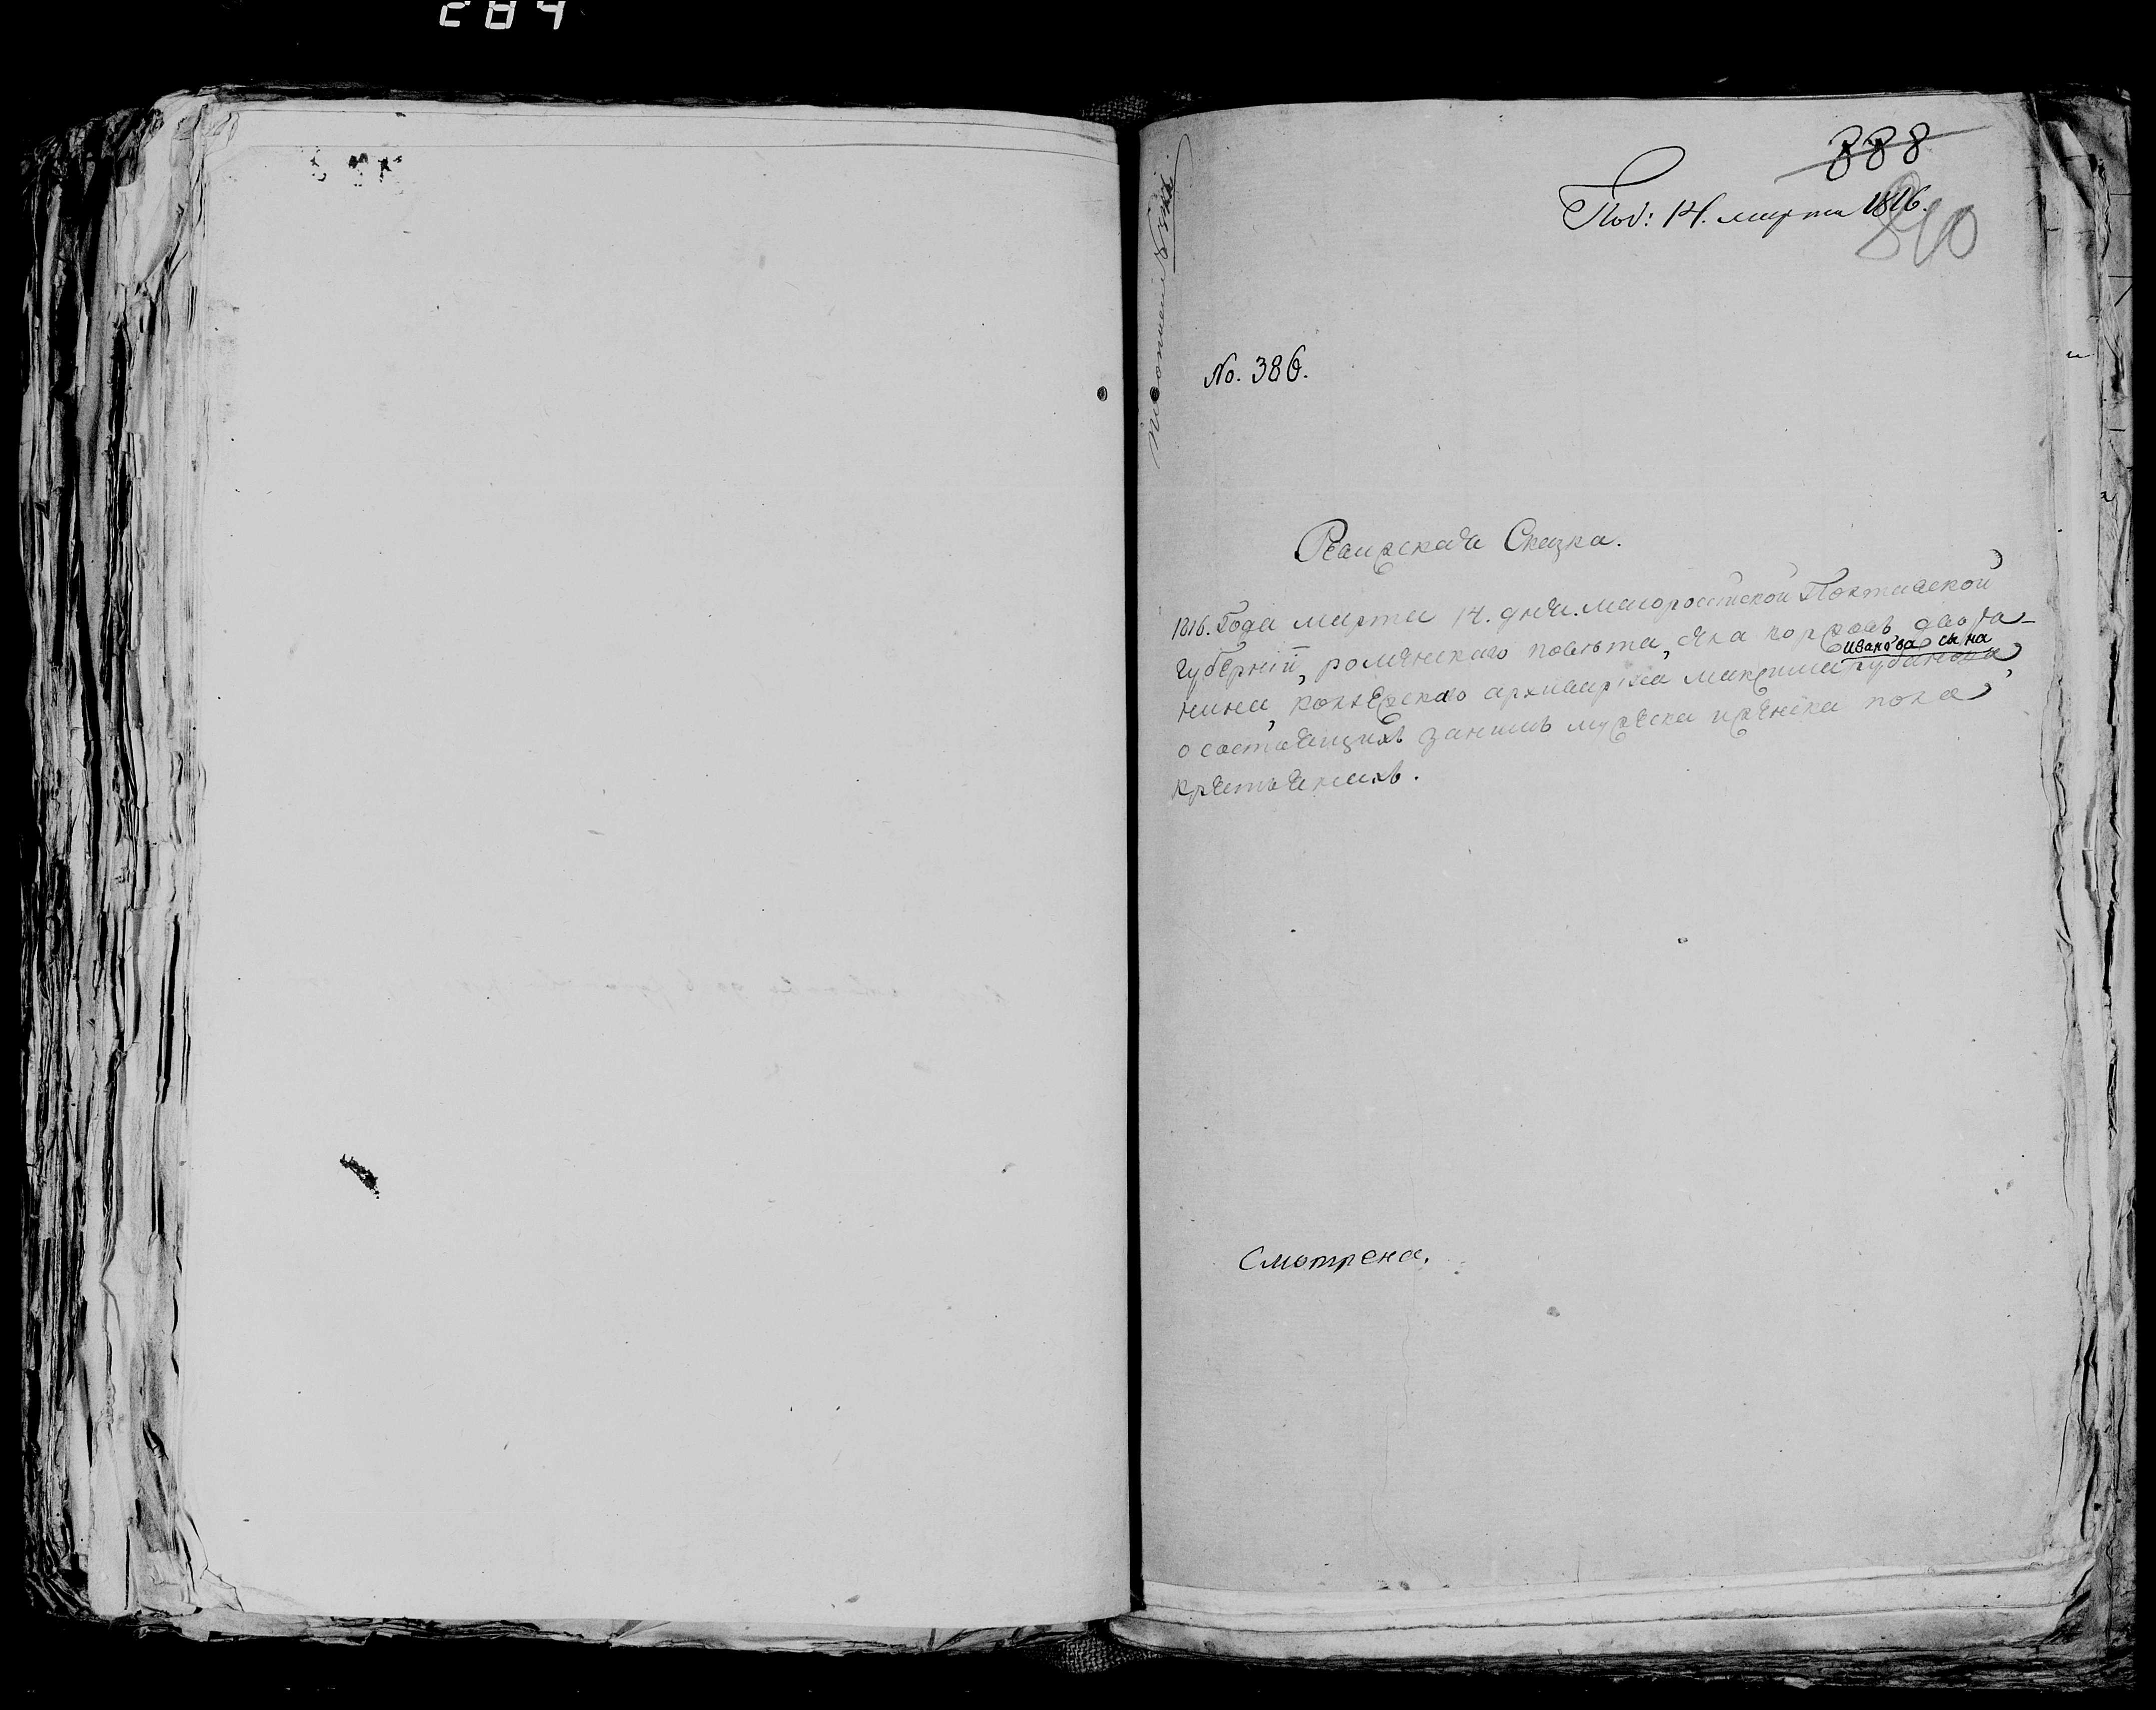 284
888
Под: 14. марта 1816.
810
No. 386.
Ревизская Сказка.
1816. Года марта 14. дня. малороссійской Полтавской
губерніи, роменскаго повѣта, села коровай дворя-
Иванова сына
нина, колежскаго архиваріуса максима
о состоящихъ занимъ мужеска иженска пола
крестьянихъ.
Смотрена.